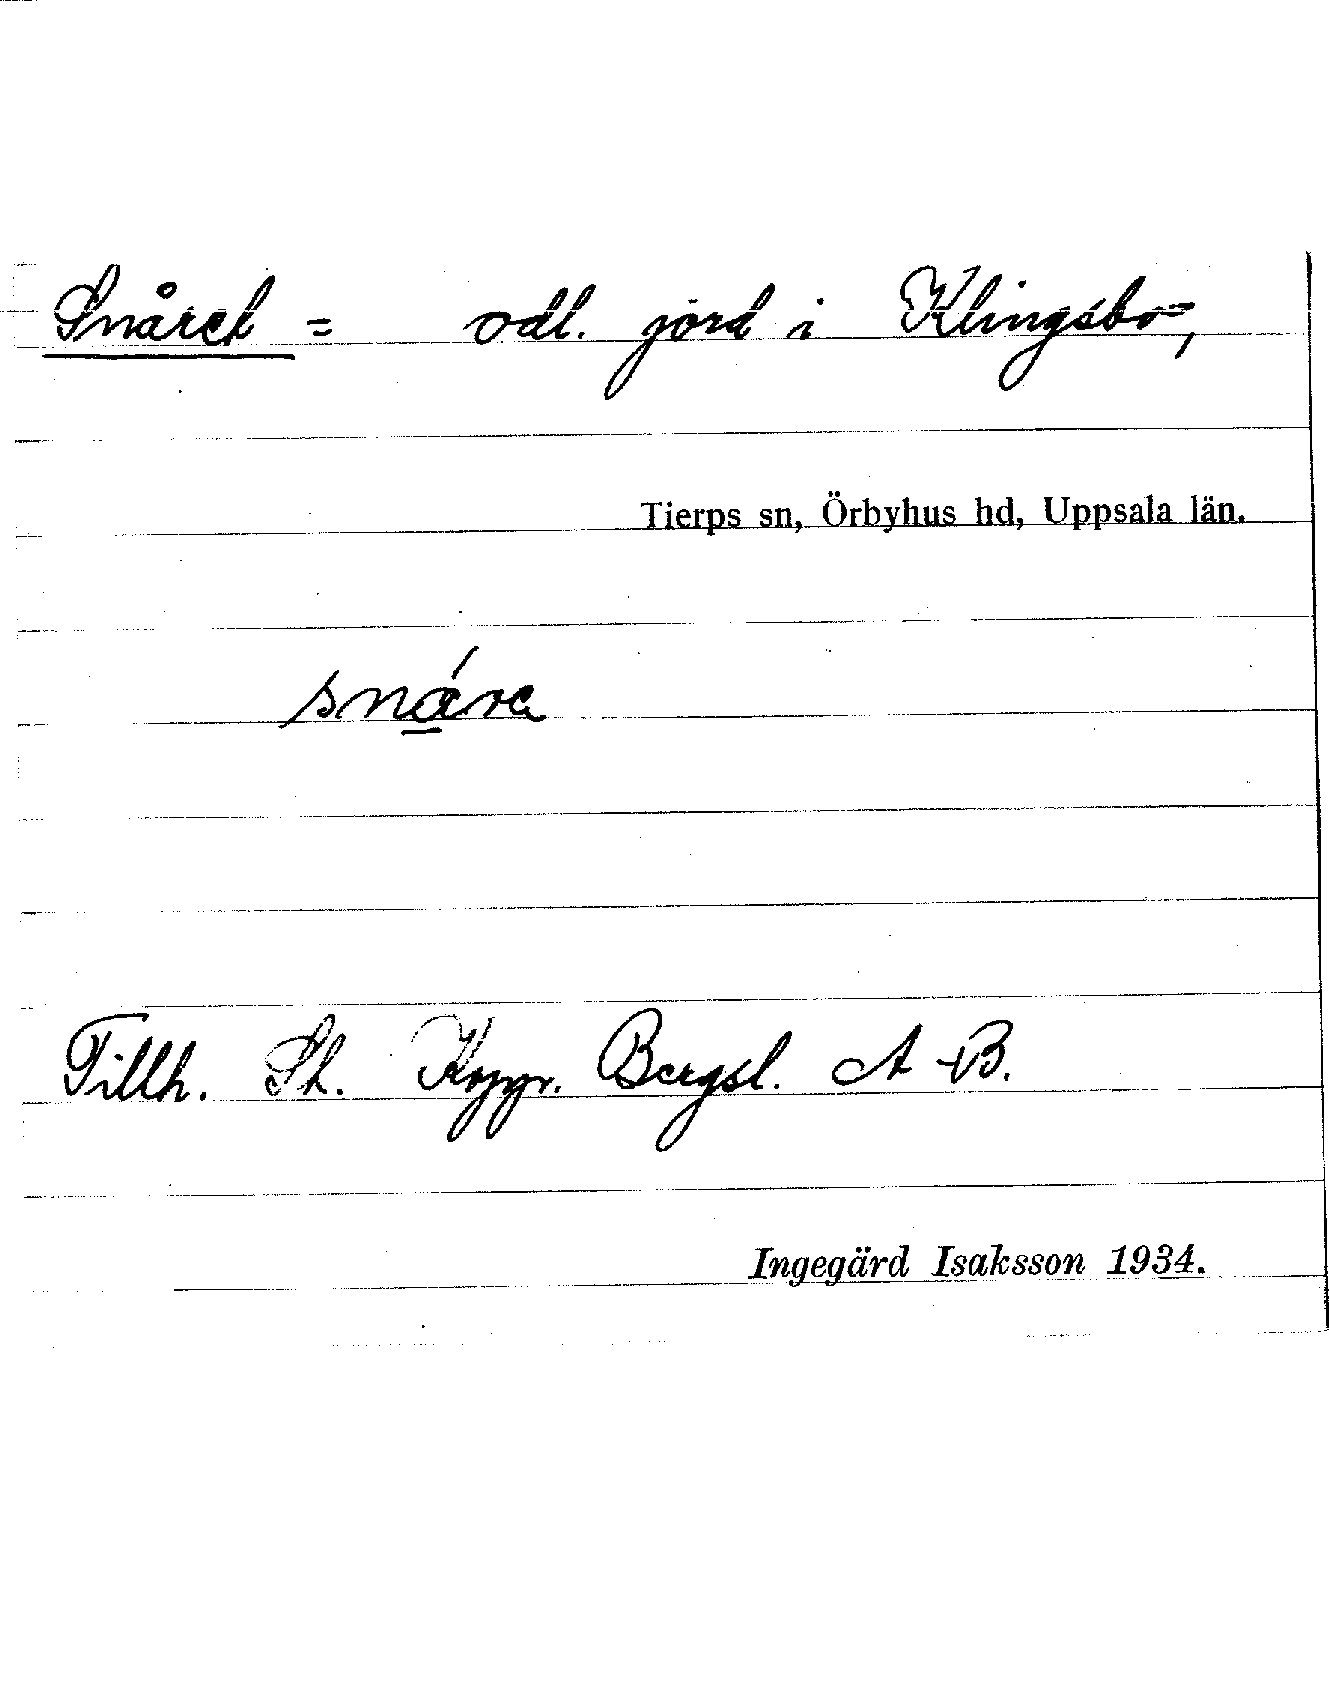 Snåret = odl. jord i Klingsbo,
Tierps sn, Örbyhus hd, Uppsala län.
snåre
Tillh. St. Koppr. Bergsl. A-B.
Ingegärd Isaksson 1934.